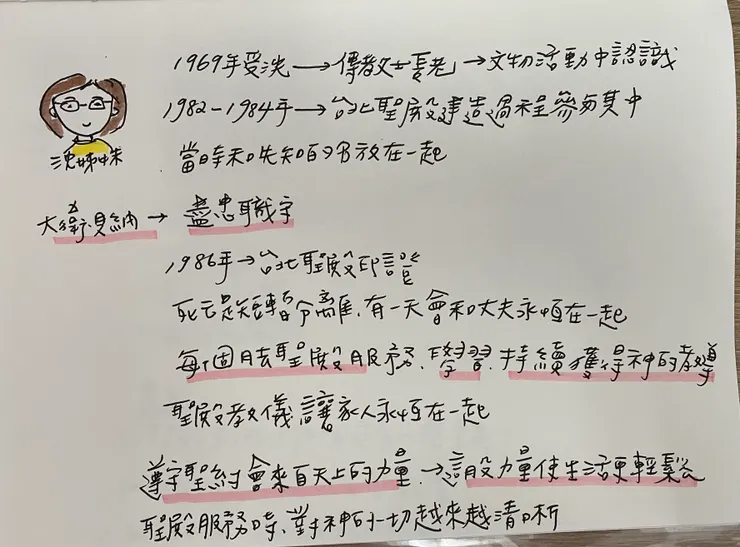 1969年受洗→傳教士長老→文物活動中認識
1982-1984年→台北聖殿建造過程參與其中
沈姊妹
當時和先知的名放在一起
大衛貝納→盡忠職守
1986年→台北聖殿印證
死亡是短暫分離，有一天會和丈夫永恆在一起
每個月去聖殿服務、學習、持續獲得神的教導
聖殿教儀讓家人永恆在一起
遵守聖約會來自天上的力量→這股力量使生活更輕鬆
聖殿服務時、對神的一切越來越清晰